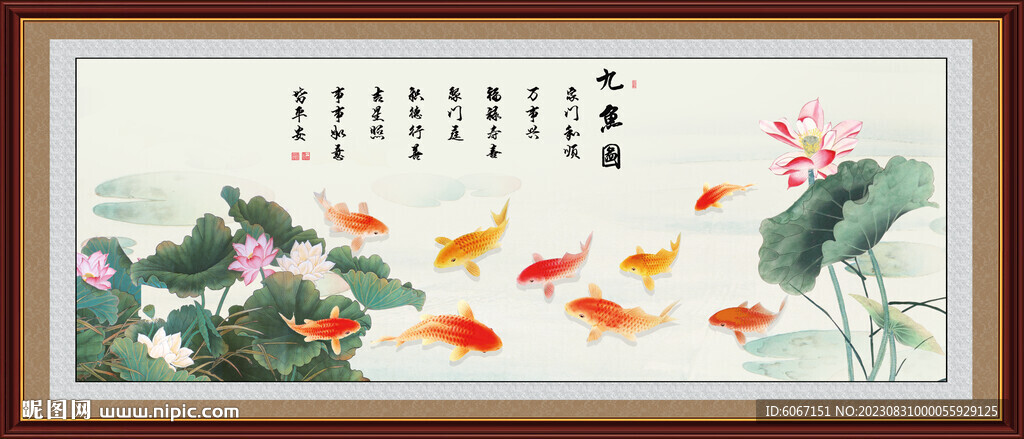 九魚圖
家门和顺
万事兴
福禄寿喜
聚门庭
积德行善
吉星照
事事如意
皆平安
昵图网 www.nipic.com
ID:6067151 NO:20230831000055929125